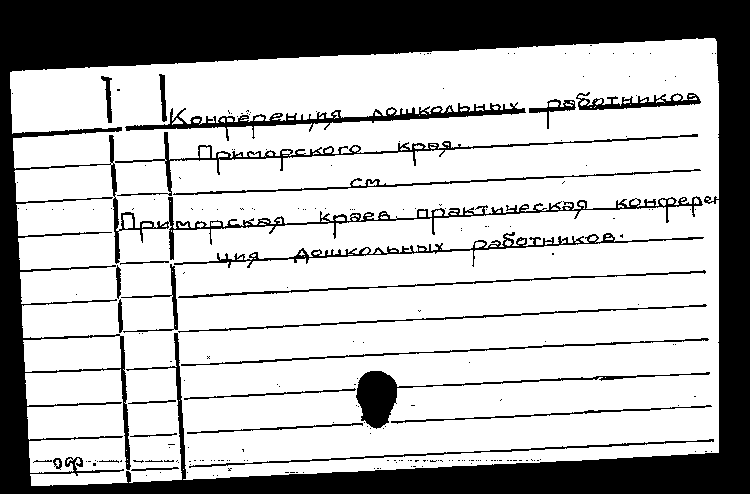 Конференция дошкольных работников
Приморского края.
см.
Приморская краев. практическая конферен
ция дошкольных работников.
оф.